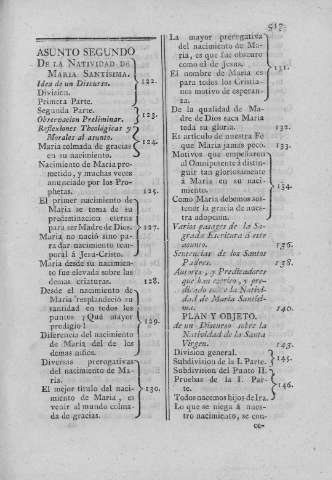 517
ASUNTO SEGUNDO
DE LA NATIVIDAD DE
MARIA SANTÍSIMA.
Idea de un Discurso. 122.
Division.
Primera Parte.
Segunda Parte. 123.
Observacion Preliminar.
Reflexîones Theológicas y
Morales al asunto. 124.
Maria colmada de gracias
en su nacimiento.
Nacimiento de Maria prometido,
y muchas veces
anunciado por los Prophetas. 125.
El primer nacimiento de
Maria se toma de su
predestinacion eterna
para ser Madre de Dios. 127.
Maria no nació sino para
dar nacimiento temporal
á Jesu-Cristo.
Maria desde su nacimiento
fue elevada sobre las
demas criaturas. 128.
Desde el nacimiento de
Maria resplandeció su
santidad en todos los
puntos ¡Qué mayor
prodigio! 129.
Diferencia del nacimiento
de Maria del de los
demas niños.
Diversas prerogativas
del nacimiento de Maria.
El mejor titulo del nacimiento 130.
de Maria, es
venir al mundo colmada
de gracias.
La mayor prerogativa
del nacimiento de Maria,
es que fue obscuro
como el de Jesus. 131.
El nombre de Maria es
para todos los Christianos
motivo de esperanza.
De la qualidad de Madre
de Dios saca Maria
toda su gloria. 132.
Es articulo de nuestra Fé
que Maria jamás peco. 133.
Motivos que empeñaron
al Omnipotente á distinguir
tan gloriosamente
á Maria en su nacimiento. 134.
Como Maria debemos sostener
la gracia de nuestra
adopcion.
Varios pasages de la Sagrada
Escritura á este
asunto. 136.
Sentencias de los Santos
Padres. 138.
Autores, y Predicadores
que han escrito, y predicado
sobre la Natividad
de Maria Santísima. 140.
PLAN Y OBJETO.
de un Discurso sobre la
Natividad de la Santa
Virgen. 143.
Division general.
Subdivision de la I. Parte. 145.
Subdivision del Punto II.
Pruebas de la I. Parte. 146.
Todos nacemos hijos de Ira.
Lo que se niega á nuestro
nacimiento, se con-
ce-